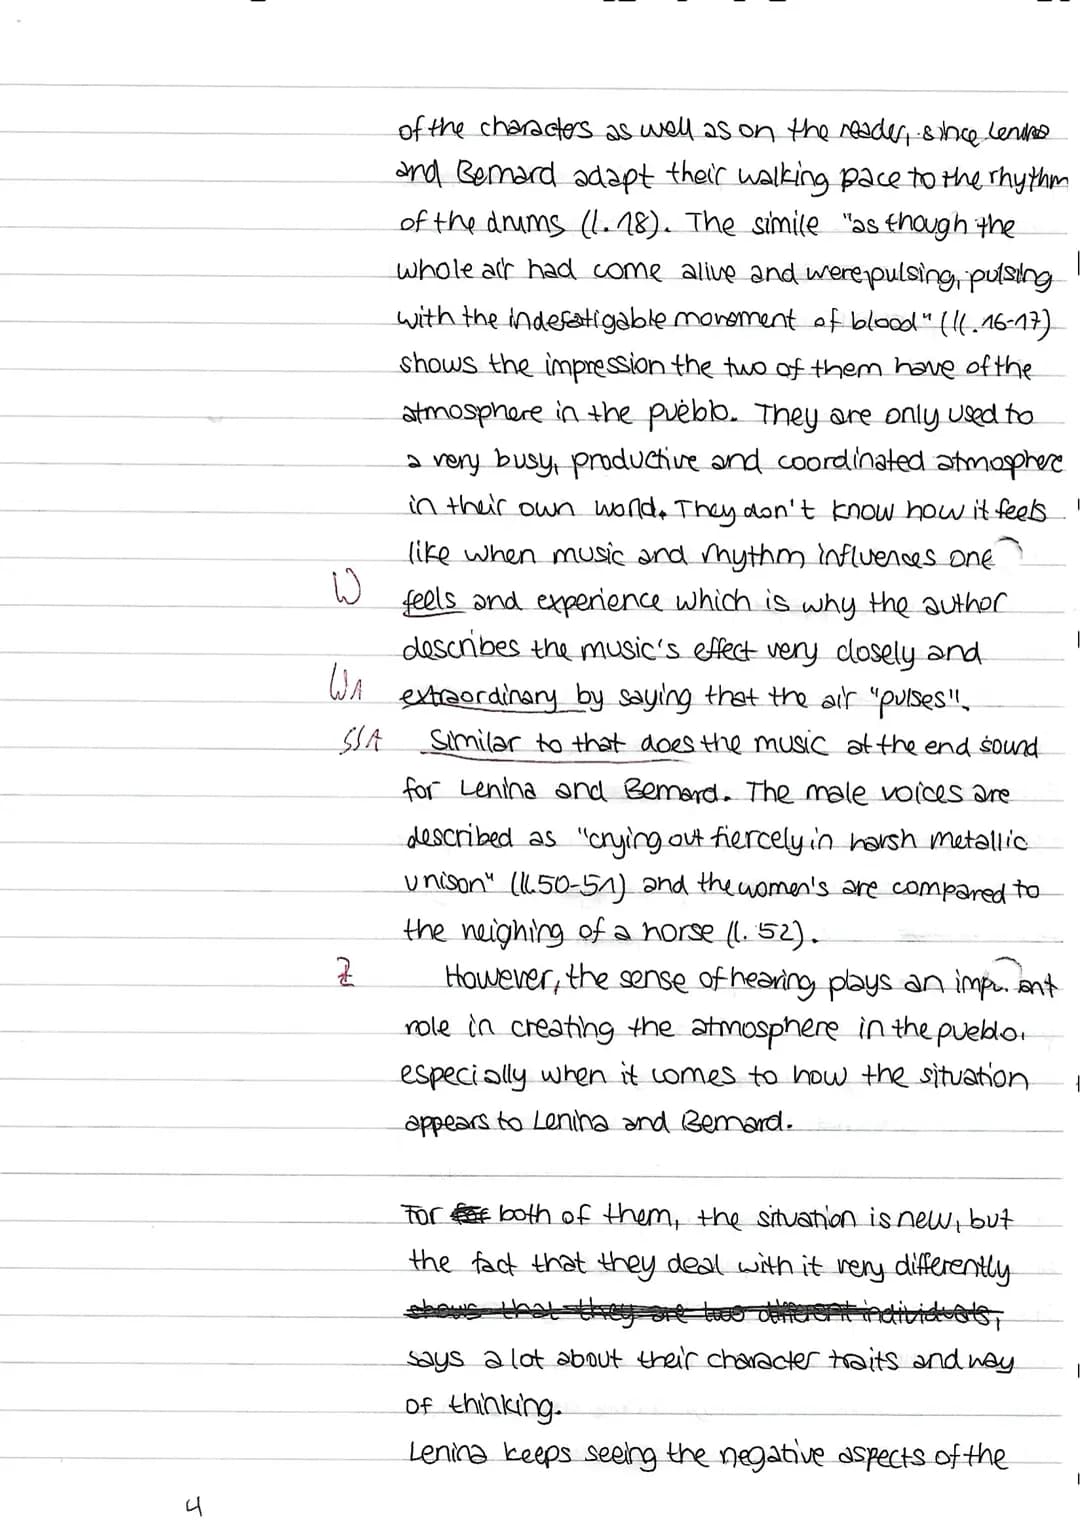 of the characters as well as on the reader, since Lenina
and Bernard adapt their walking pace to the rhythm
of the drums (l. 18). The simile "as though the
whole air had come alive and were pulsing, pulsing
with the indefatigable movement of blood" (ll. 16-17)
shows the impression the two of them have of the
atmosphere in the pueblo. They are only used to
a very busy, productive and coordinated atmosphere
in their own world. They don't know how it feels
like when music and rhythm influences one
W feels and experience which is why the author
describes the music's effect very closely and
WA extraordinary by saying that the air "pulses".
SSA Similar to that does the music at the end sound
for Lenina and Bernard. The male voices are
described as "crying out fiercely in harsh metallic
unison" (ll. 50-51) and the women's are compared to
the neighing of a horse (l. 52).
Z However, the sense of hearing plays an important
role in creating the atmosphere in the pueblo,
especially when it comes to how the situation
appears to Lenina and Bernard.
For both of them, the situation is new, but
the fact that they deal with it very differently
shows that they are two different individuals,
says a lot about their character traits and way
of thinking.
Lenina keeps seeing the negative aspects of the
4